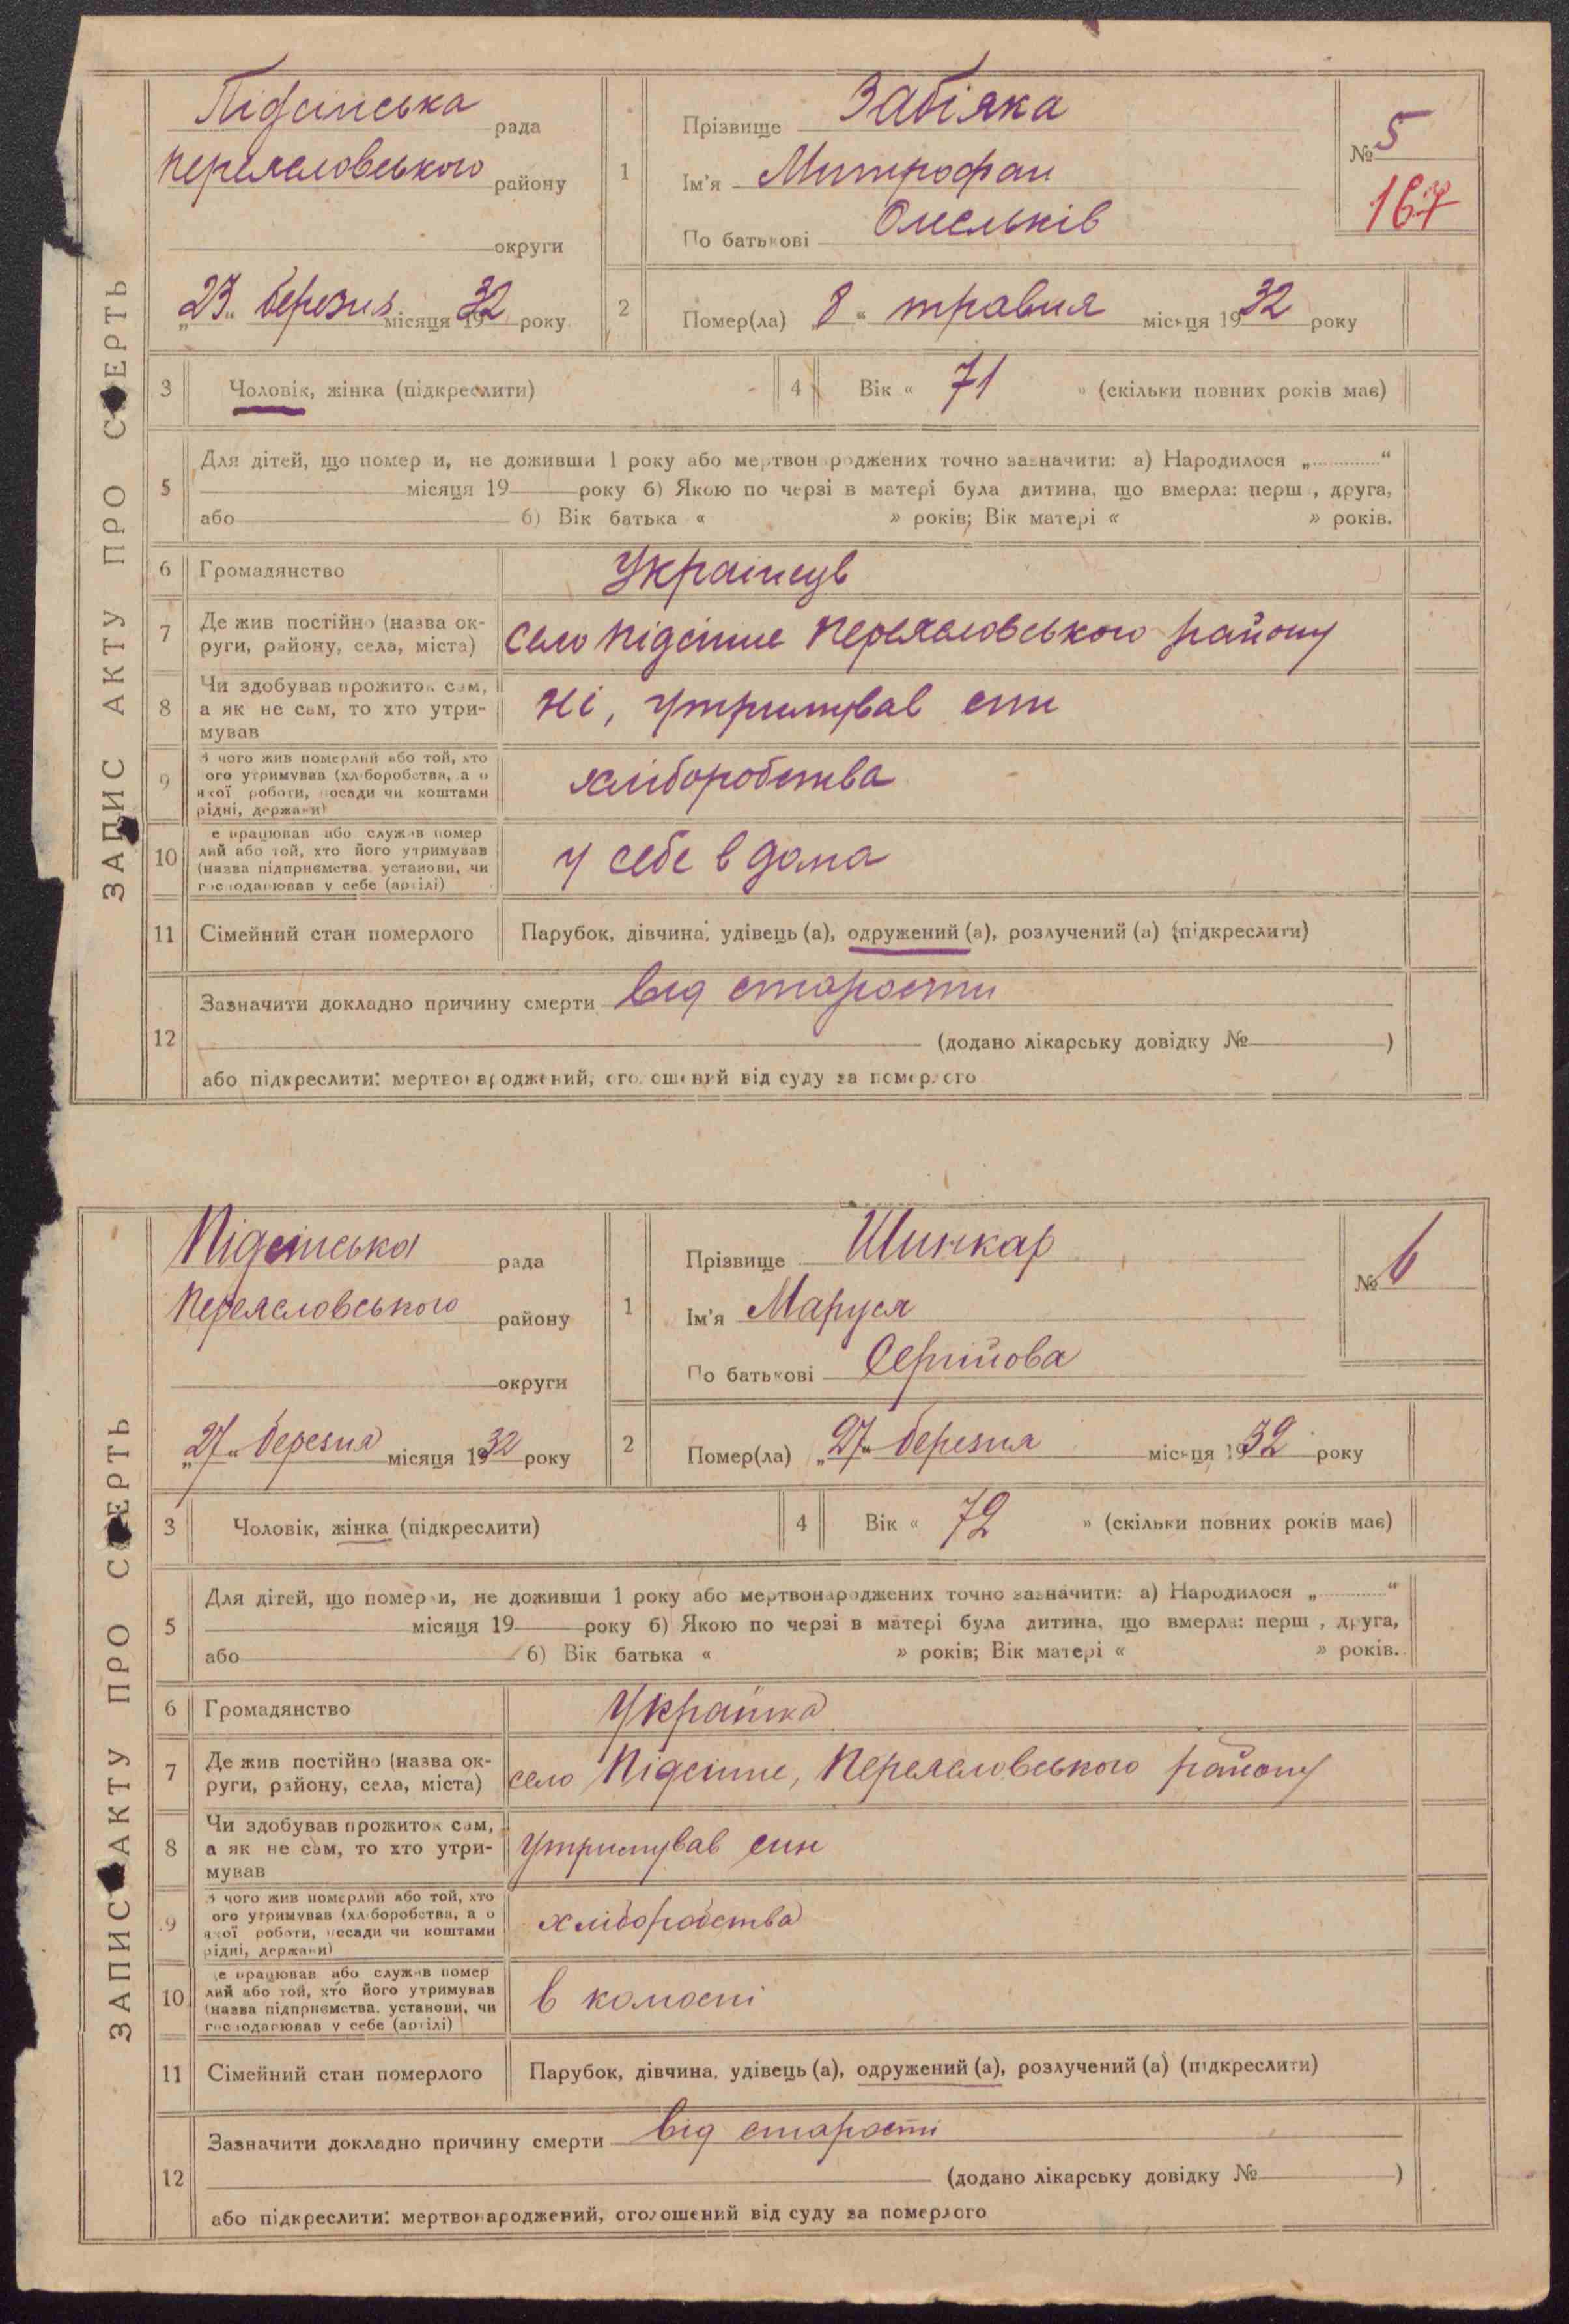 ЗАПИС АКТУ ПРО СМЕРТЬ
Підсінська рада
Переяславського району
округи
„23“ березня місяця 1932 року
1
Прізвище Забіяка
Ім'я Митрофан
По батькові Омельків
№ 5
167
2
Помер(ла) „8“ травня місяця 1932 року
3 Чоловік, жінка (підкреслити)
4 Вік « 71 » (скільки повних років має)
5
Для дітей, що померли, не доживши 1 року або мертвонароджених точно зазначити: а) Народилося „............“
місяця 19 року б) Якою по черзі в матері була дитина, що вмерла: перша, друга,
або б) Вік батька « » років; Вік матері « » років.
6 Громадянство Українець
7 Де жив постійно (назва ок-
руги, району, села, міста) Село Підсінне Переясловського району
8 Чи здобував прожиток сам,
а як не сам, то хто утри-
мував Ні, утримував син
9 З чого жив померлий або той, хто
його утримував (хліборобства, а о
якої роботи, посади чи коштами
рідні, держави) хліборобства
10 Де працював або служив помер
лий або той, хто його утримував
(назва підприємства, установи, чи
господарював у себе (артілі) у себе в дома
11 Сімейний стан померлого Парубок, дівчина, удівець (а), одружений (а), розлучений (а) (підкреслити)
12
Зазначити докладно причину смерти від старости
(додано лікарську довідку № )
або підкреслити: мертвонароджений, оголошений від суду за померлого
ЗАПИС АКТУ ПРО СМЕРТЬ
Підсінська рада
Переясловського району
округи
„27“ березня місяця 1932 року
1
Прізвище Шинкар
Ім'я Маруся
По батькові Сергійова
№ 6
2
Помер(ла) „27“ березня місяця 1932 року
3 Чоловік, жінка (підкреслити)
4 Вік « 72 » (скільки повних років має)
5
Для дітей, що померли, не доживши 1 року або мертвонароджених точно зазначити: а) Народилося „............“
місяця 19 року б) Якою по черзі в матері була дитина, що вмерла: перша, друга,
або б) Вік батька « » років; Вік матері « » років.
6 Громадянство Українка
7 Де жив постійно (назва ок-
руги, району, села, міста) село Підсінне, Переясловського району
8 Чи здобував прожиток сам,
а як не сам, то хто утри-
мував утримував син
9 З чого жив померлий або той, хто
його утримував (хліборобства, а о
якої роботи, посади чи коштами
рідні, держави) хліборобства
10 Де працював або служив помер
лий або той, хто його утримував
(назва підприємства, установи, чи
господарював у себе (артілі) в комосі
11 Сімейний стан померлого Парубок, дівчина, удівець (а), одружений (а), розлучений (а) (підкреслити)
12
Зазначити докладно причину смерти від старості
(додано лікарську довідку № )
або підкреслити: мертвонароджений, оголошений від суду за померлого